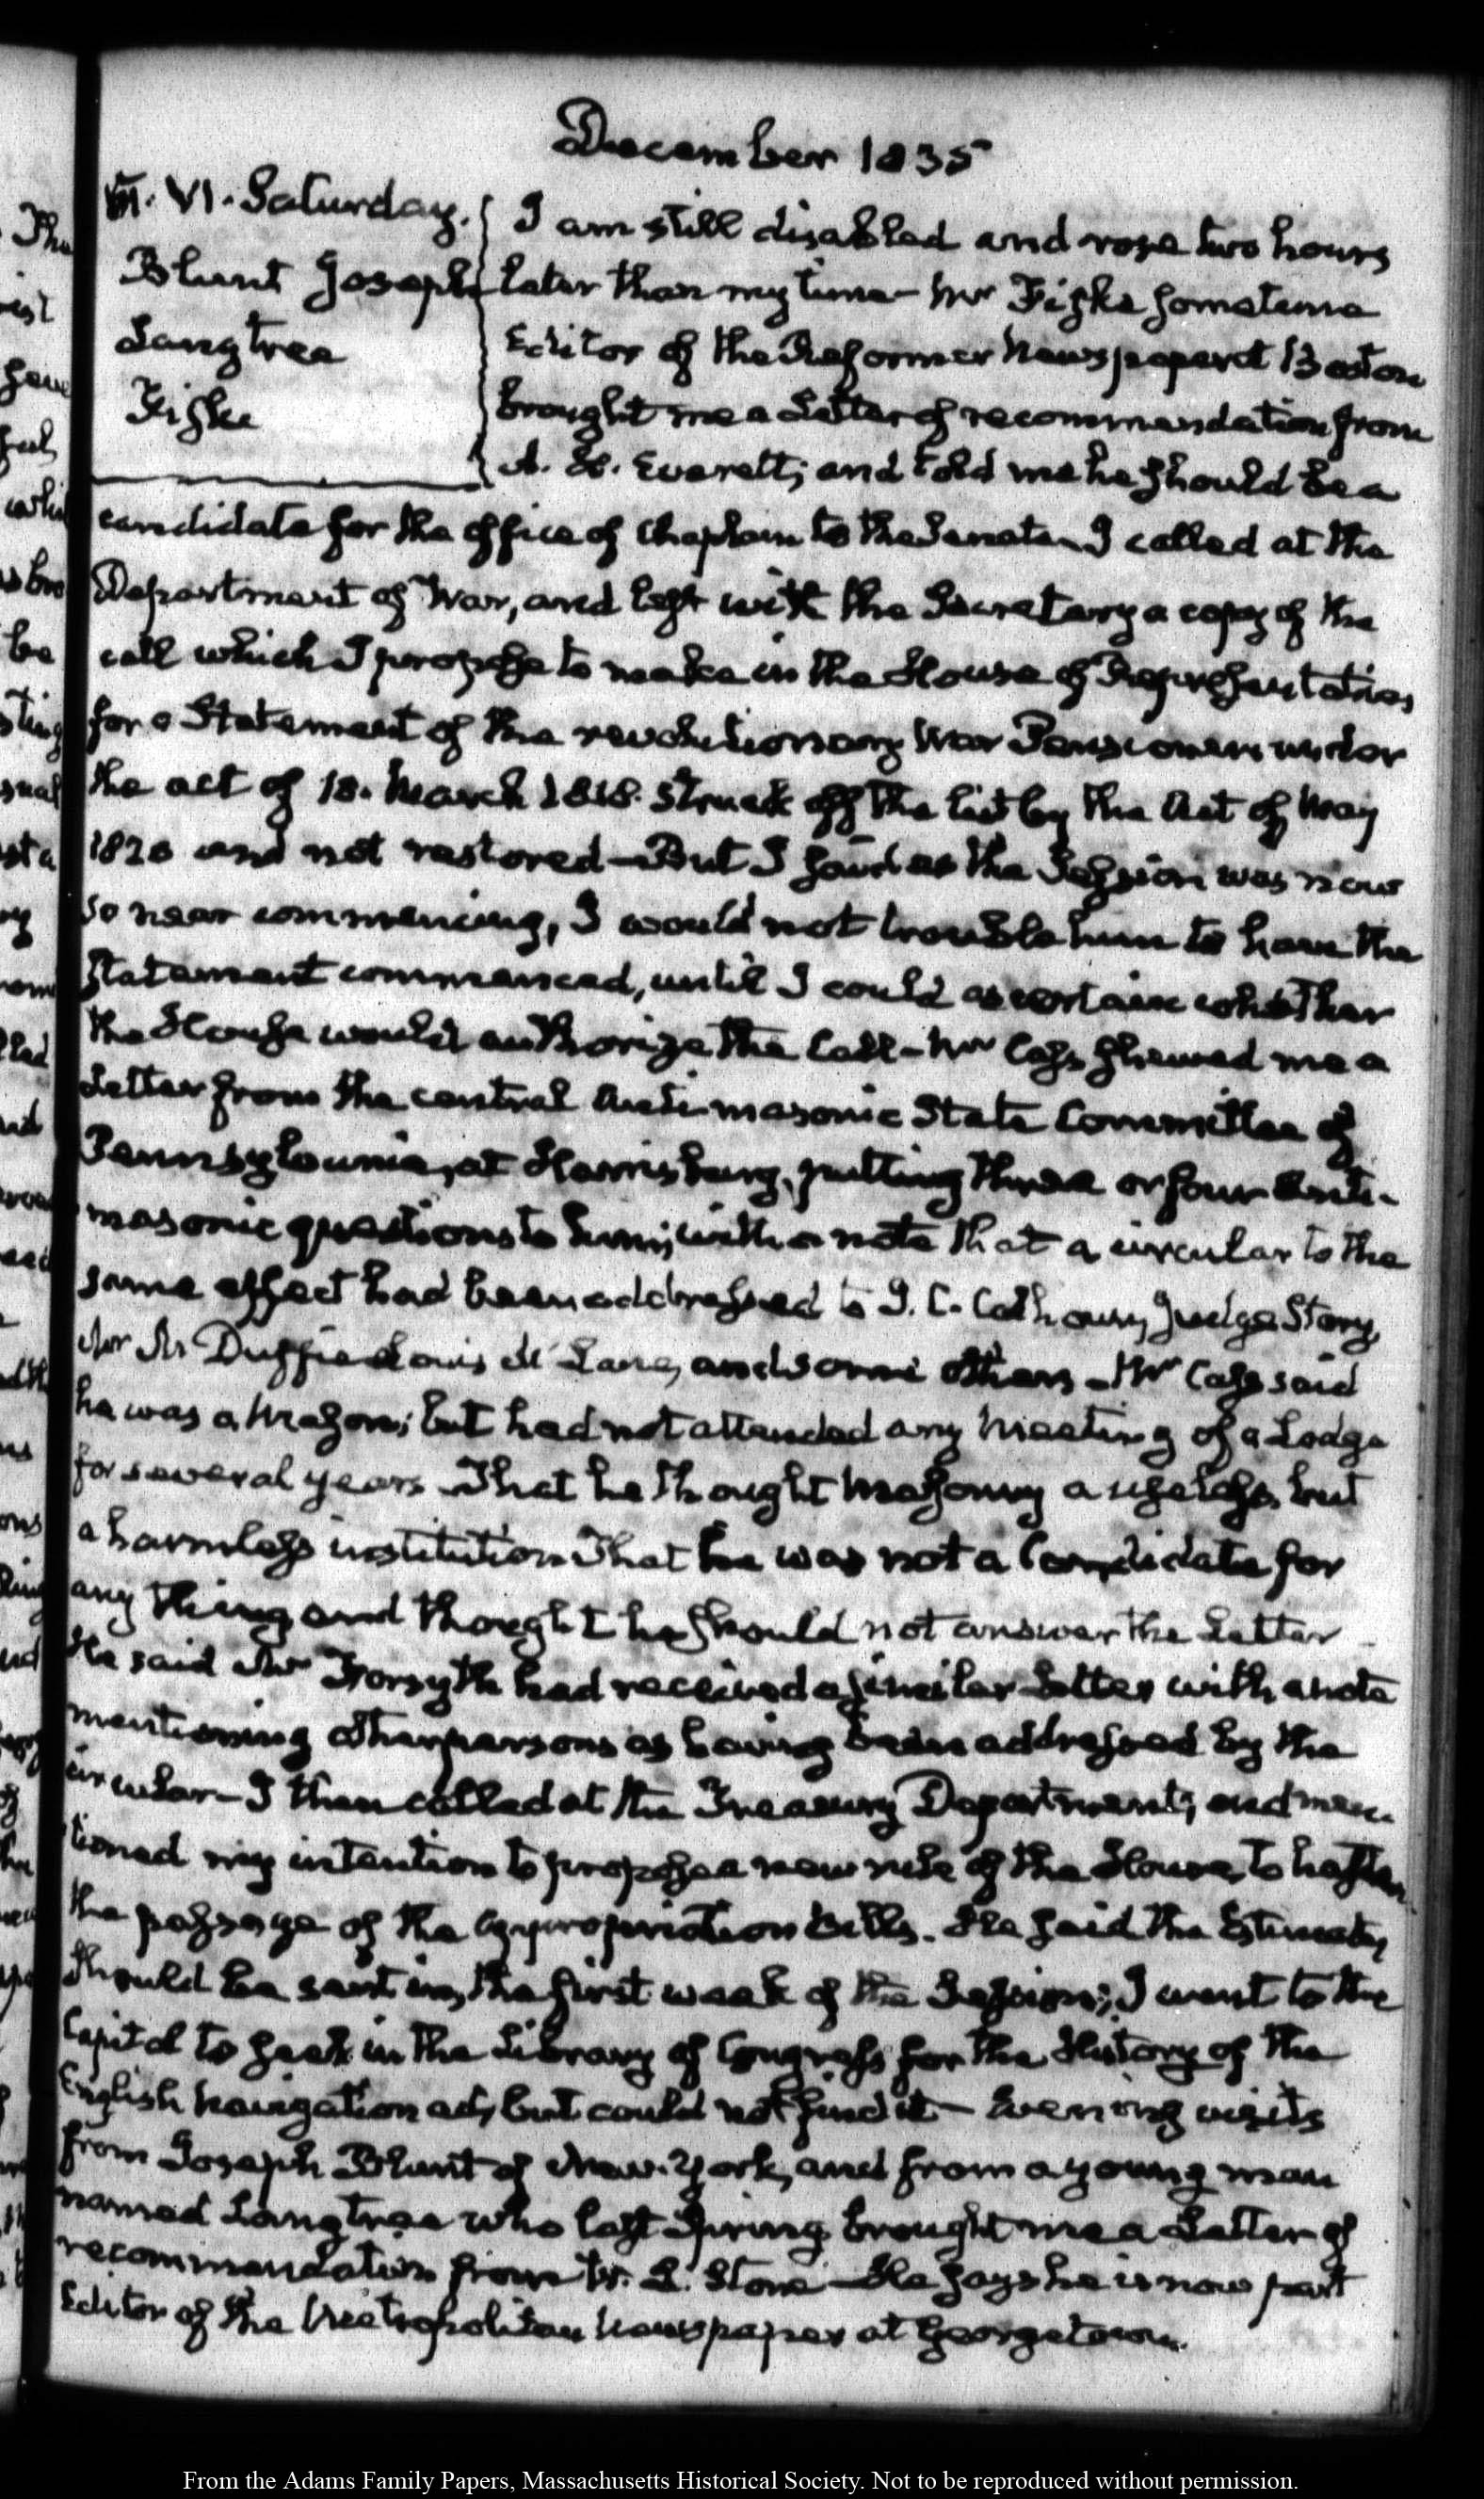 December 1835
VI. Saturday.
Blunt Joseph
Langtree
Fiske
I am still disabled and rose two hours
later than my time— Mr Fiske sometime
Editor of the Reformer Newspaper at Boston
brought me a Letter of recommendation from
A. H. Everett; and told me he should be a
candidate for the office of Chaplain to the Senate— I called at the
Department of War, and left with the Secretary a copy of the
call which I propose to make in the House of Representatives
for a Statement of the revolutionary War Pensioners under
the act of 18. March 1818. struck off the list by the Act of May
1820 and not restored— But I said as the Session was now
so near commencing, I would not trouble him to have the
statement commenced, until I could ascertain whether
the House would authorize the Call— Mr Cass shewed me a
Letter from the central Anti-masonic State Committee of
Pennsylvania, at Harrisburg, putting three or four Anti-
masonic questions to him; with a note that a circular to the
same effect had been addressed to J. C. Calhoun, Judge Story,
Mr McDuffie Louis McLane, and some others— Mr Cass said
he was a Mason; but had not attended any Meeting of a Lodge
for several years— That he thought Masonry a useless, but
a harmless institution— That he was not a Candidate for
any thing, and thought he should not answer the Letter
He said Mr Forsyth had received a similar Letter with a note
mentioning other persons as having been addressed by the
circular— I then called at the Treasury Department, and men-
tioned my intention to propose a new rule of the House, to hasten
the passage of the appropriation Bills. He said the Estimates
should be sent in, the first week of the Session; I went to the
Capitol to seek in the Library of Congress for the History of the
English Navigation act, but could not find it— Evening visits
from Joseph Blunt of New-York, and from a young man
named Langtree who last Spring brought me a Letter of
recommendation from W. L. Stone— He says he is now part
Editor of the Metropolitan Newspaper at Georgetown.
From the Adams Family Papers, Massachusetts Historical Society. Not to be reproduced without permission.